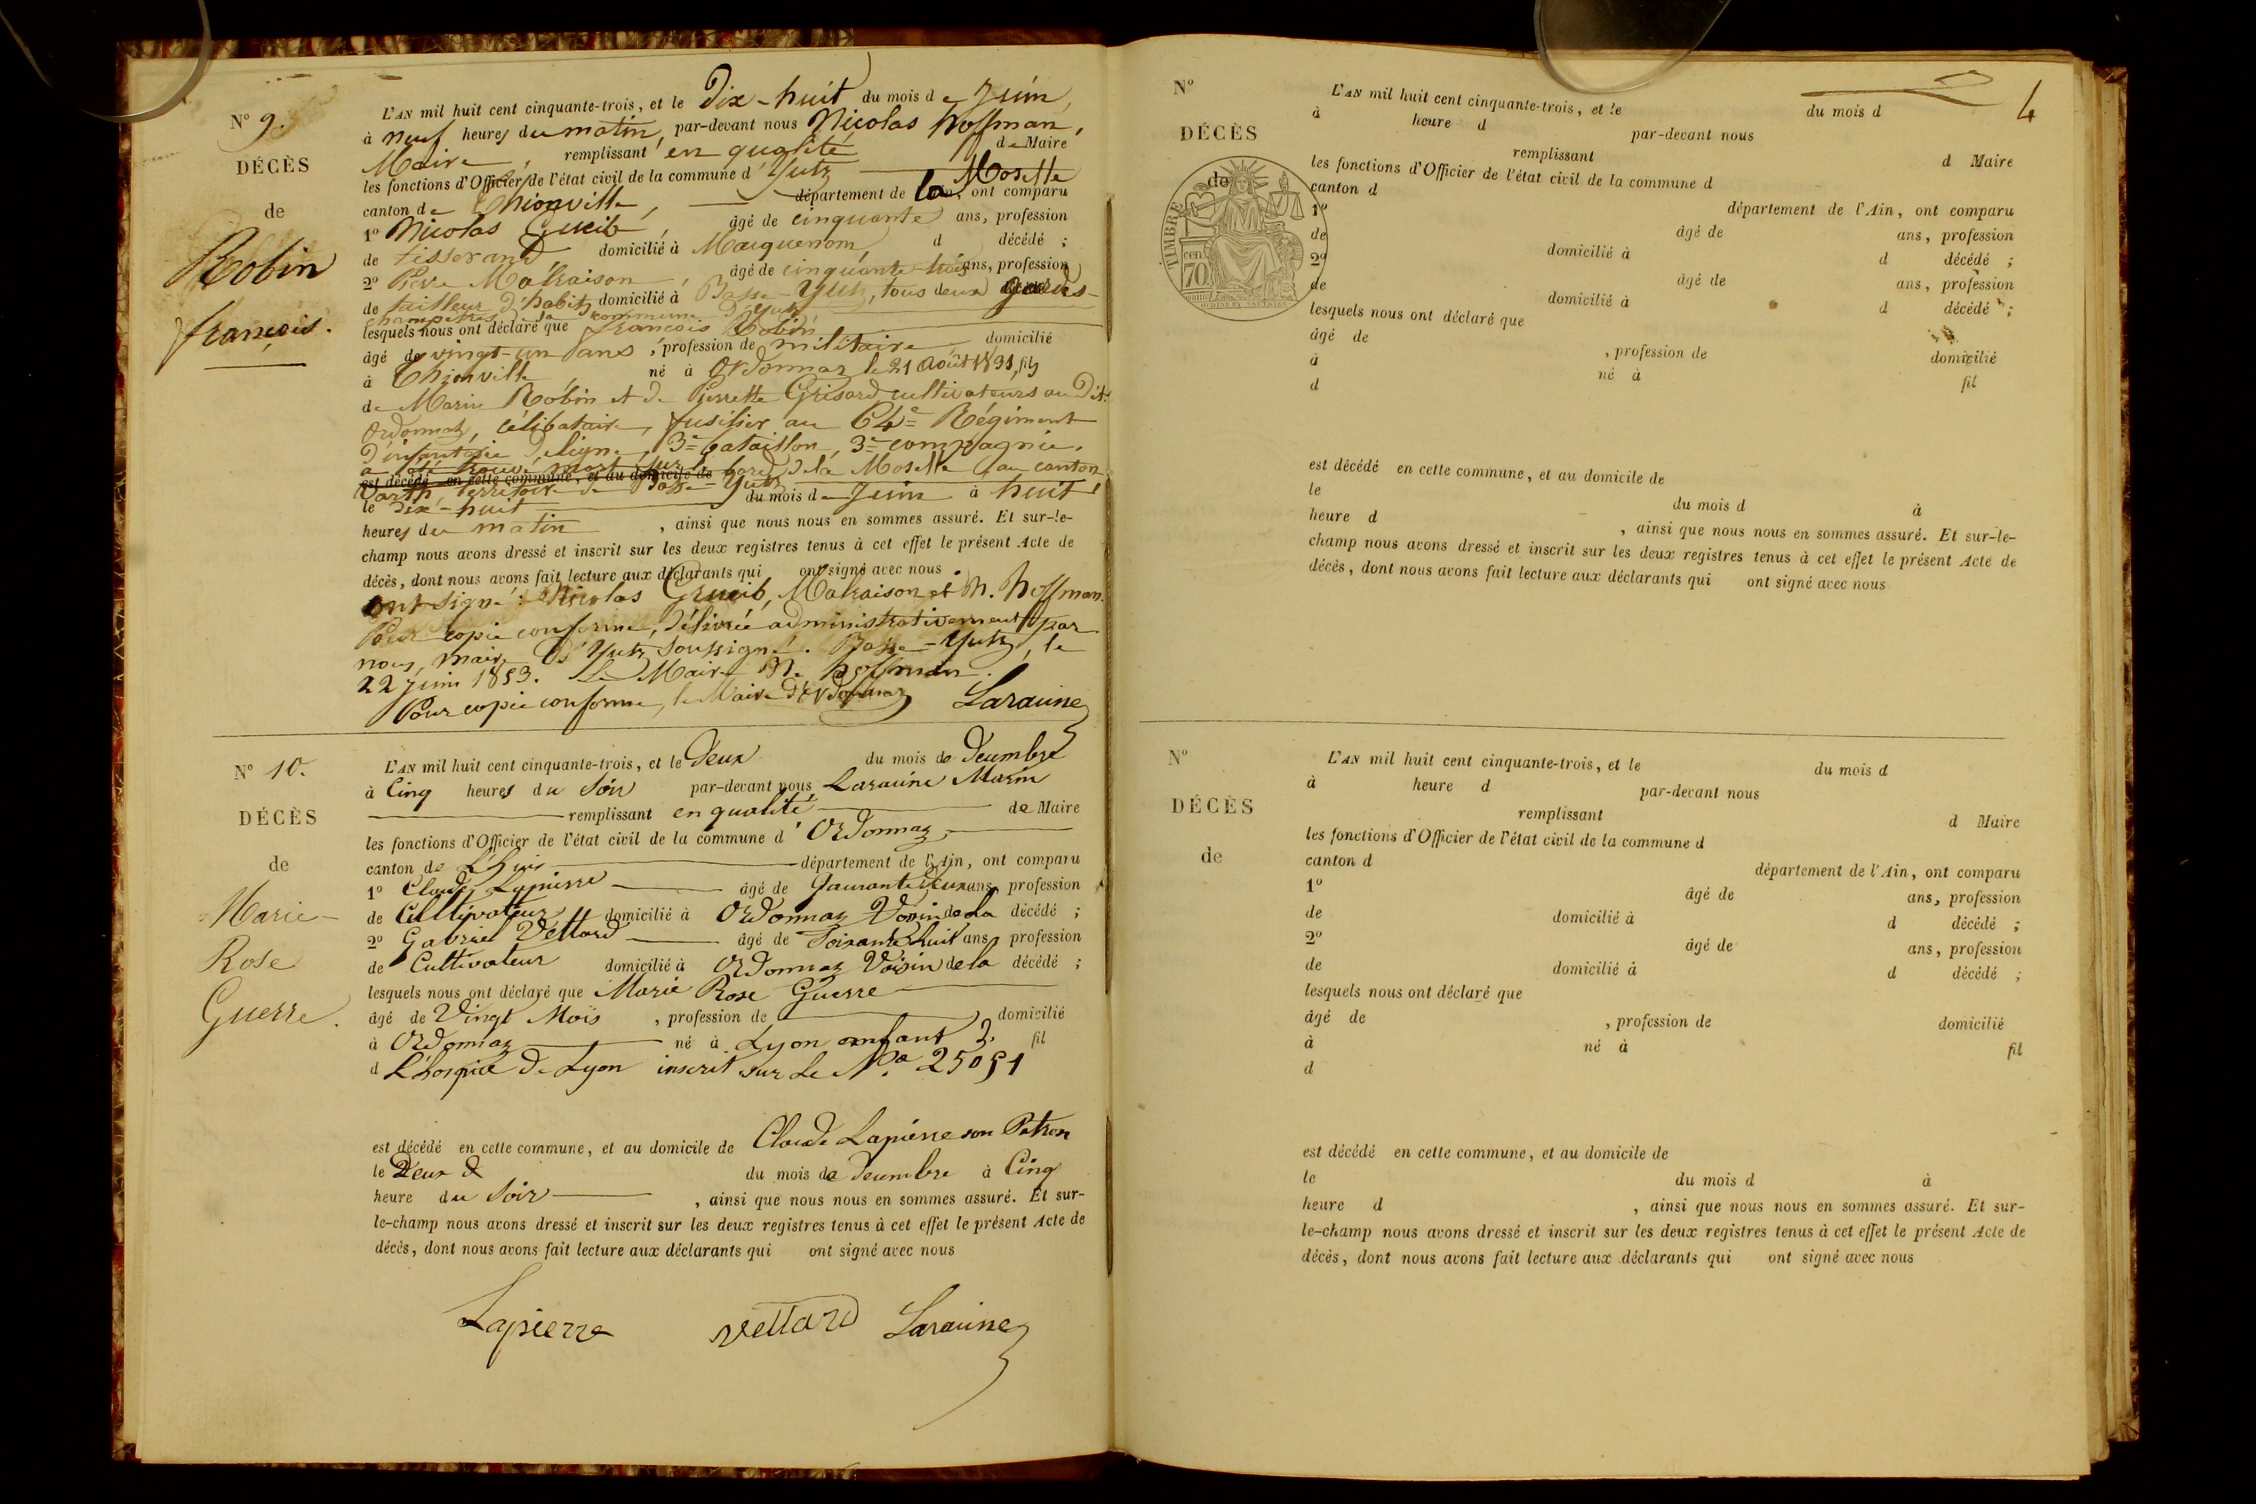 N° 9.
DÉCÈS
de
Robin
François.
L'AN mil huit cent cinquante-trois, et le Dix-huit du mois de Juin,
à neuf heures du matin, par-devant nous Nicolas Hoffman,
Maire, remplissant en qualité de Maire
les fonctions d'Officier de l'état civil de la commune d'Yutz
canton de Thionville, département de la Moselle, ont comparu
1° Nicolas âgé de cinquante ans, profession
de tisserand domicilié à Macquenom d décédé ;
2° Pierre Malraison, âgé de cinquante-trois ans, profession
de tailleur d'habits domicilié à Basse-Yutz, tous deux gardes-
champêtres de la commune d'Yutz
lesquels nous ont déclaré que François Robin
âgé de vingt-un ans, profession de militaire domicilié
à Thionville, né à Ordonnaz le 21 Août 1831, fils
de Marin Robin et de Pierrette Grisard cultivateurs au Dit
Ordonnaz, célibataire, fusilier au 64e Régiment
d'infanterie de ligne, 3e bataillon, 3e compagnie,
a été trouvé mort sur le bord de la Moselle au canton
est décédé en cette commune, et au domicile de
territoire de Basse-Yutz
le dix-huit du mois de Juin à huit
heures du matin, ainsi que nous nous en sommes assuré. Et sur-le-
champ nous avons dressé et inscrit sur les deux registres tenus à cet effet le présent Acte de
décès, dont nous avons fait lecture aux déclarants qui ont signé avec nous.
ont signé : Nicolas Malraison et N. Hoffman.
Pour copie conforme, délivrée administrativement par
nous, maire d'Yutz soussigné. Basse-Yutz, le
22 juin 1853. Le Maire N. Hoffman.
Pour copie conforme, le Maire d'Ordonnaz Laraine
N° 10.
DÉCÈS
de
Marie-
Rose
Guerre.
L'AN mil huit cent cinquante-trois, et le Deux du mois de Decembre
à Cinq heures du Soir par-devant nous Laraine Marin
remplissant en qualité de Maire
les fonctions d'Officier de l'état civil de la commune d'Ordonnaz
canton de L'huis département de l'Ain, ont comparu
1° Claude Lapierre âgé de Quarante Deux ans, profession
de Cultivateur domicilié à Ordonnaz Voisin de La décédé ;
2° Gabriel Vettard âgé de Soixante huit ans, profession
de Cultivateur domicilié à Ordonnaz Voisin de la décédé ;
lesquels nous ont déclaré que Marie Rose Guerre
âgé de Vingt Mois, profession de domicilié
à Ordonnaz né à Lyon enfant D. fil
d L'hospice De Lyon inscrit sur Le N° 25051
est décédé en cette commune, et au domicile de Claude Lapierre son Patron
le Deux du mois de Decembre à Cinq
heure du Soir, ainsi que nous nous en sommes assuré. Et sur-
le-champ nous avons dressé et inscrit sur les deux registres tenus à cet effet le présent Acte de
décès, dont nous avons fait lecture aux déclarants qui ont signé avec nous
Lapierre vettard Laraine
4
N°
DÉCÈS
de
TIMBRE
cen
70
L'AN mil huit cent cinquante-trois, et le du mois d
à heure d par-devant nous
remplissant d Maire
les fonctions d'Officier de l'état civil de la commune d
canton d département de l'Ain, ont comparu
1° âgé de ans, profession
de domicilié à d décédé ;
2° âgé de ans, profession
de domicilié à d décédé ;
lesquels nous ont déclaré que
âgé de , profession de domicilié
à né à fil
d
est décédé en cette commune, et au domicile de
le du mois d à
heure d , ainsi que nous nous en sommes assuré. Et sur-le-
champ nous avons dressé et inscrit sur les deux registres tenus à cet effet le présent Acte de
décès, dont nous avons fait lecture aux déclarants qui ont signé avec nous
N°
DÉCÈS
de
L'AN mil huit cent cinquante-trois, et le du mois d
à heure d par-devant nous
remplissant d Maire
les fonctions d'Officier de l'état civil de la commune d
canton d département de l'Ain, ont comparu
1° âgé de ans, profession
de domicilié à d décédé ;
2° âgé de ans, profession
de domicilié à d décédé ;
lesquels nous ont déclaré que
âgé de , profession de domicilié
à né à fil
d
est décédé en cette commune, et au domicile de
le du mois d à
heure d , ainsi que nous nous en sommes assuré. Et sur-
le-champ nous avons dressé et inscrit sur les deux registres tenus à cet effet le présent Acte de
décès, dont nous avons fait lecture aux déclarants qui ont signé avec nous